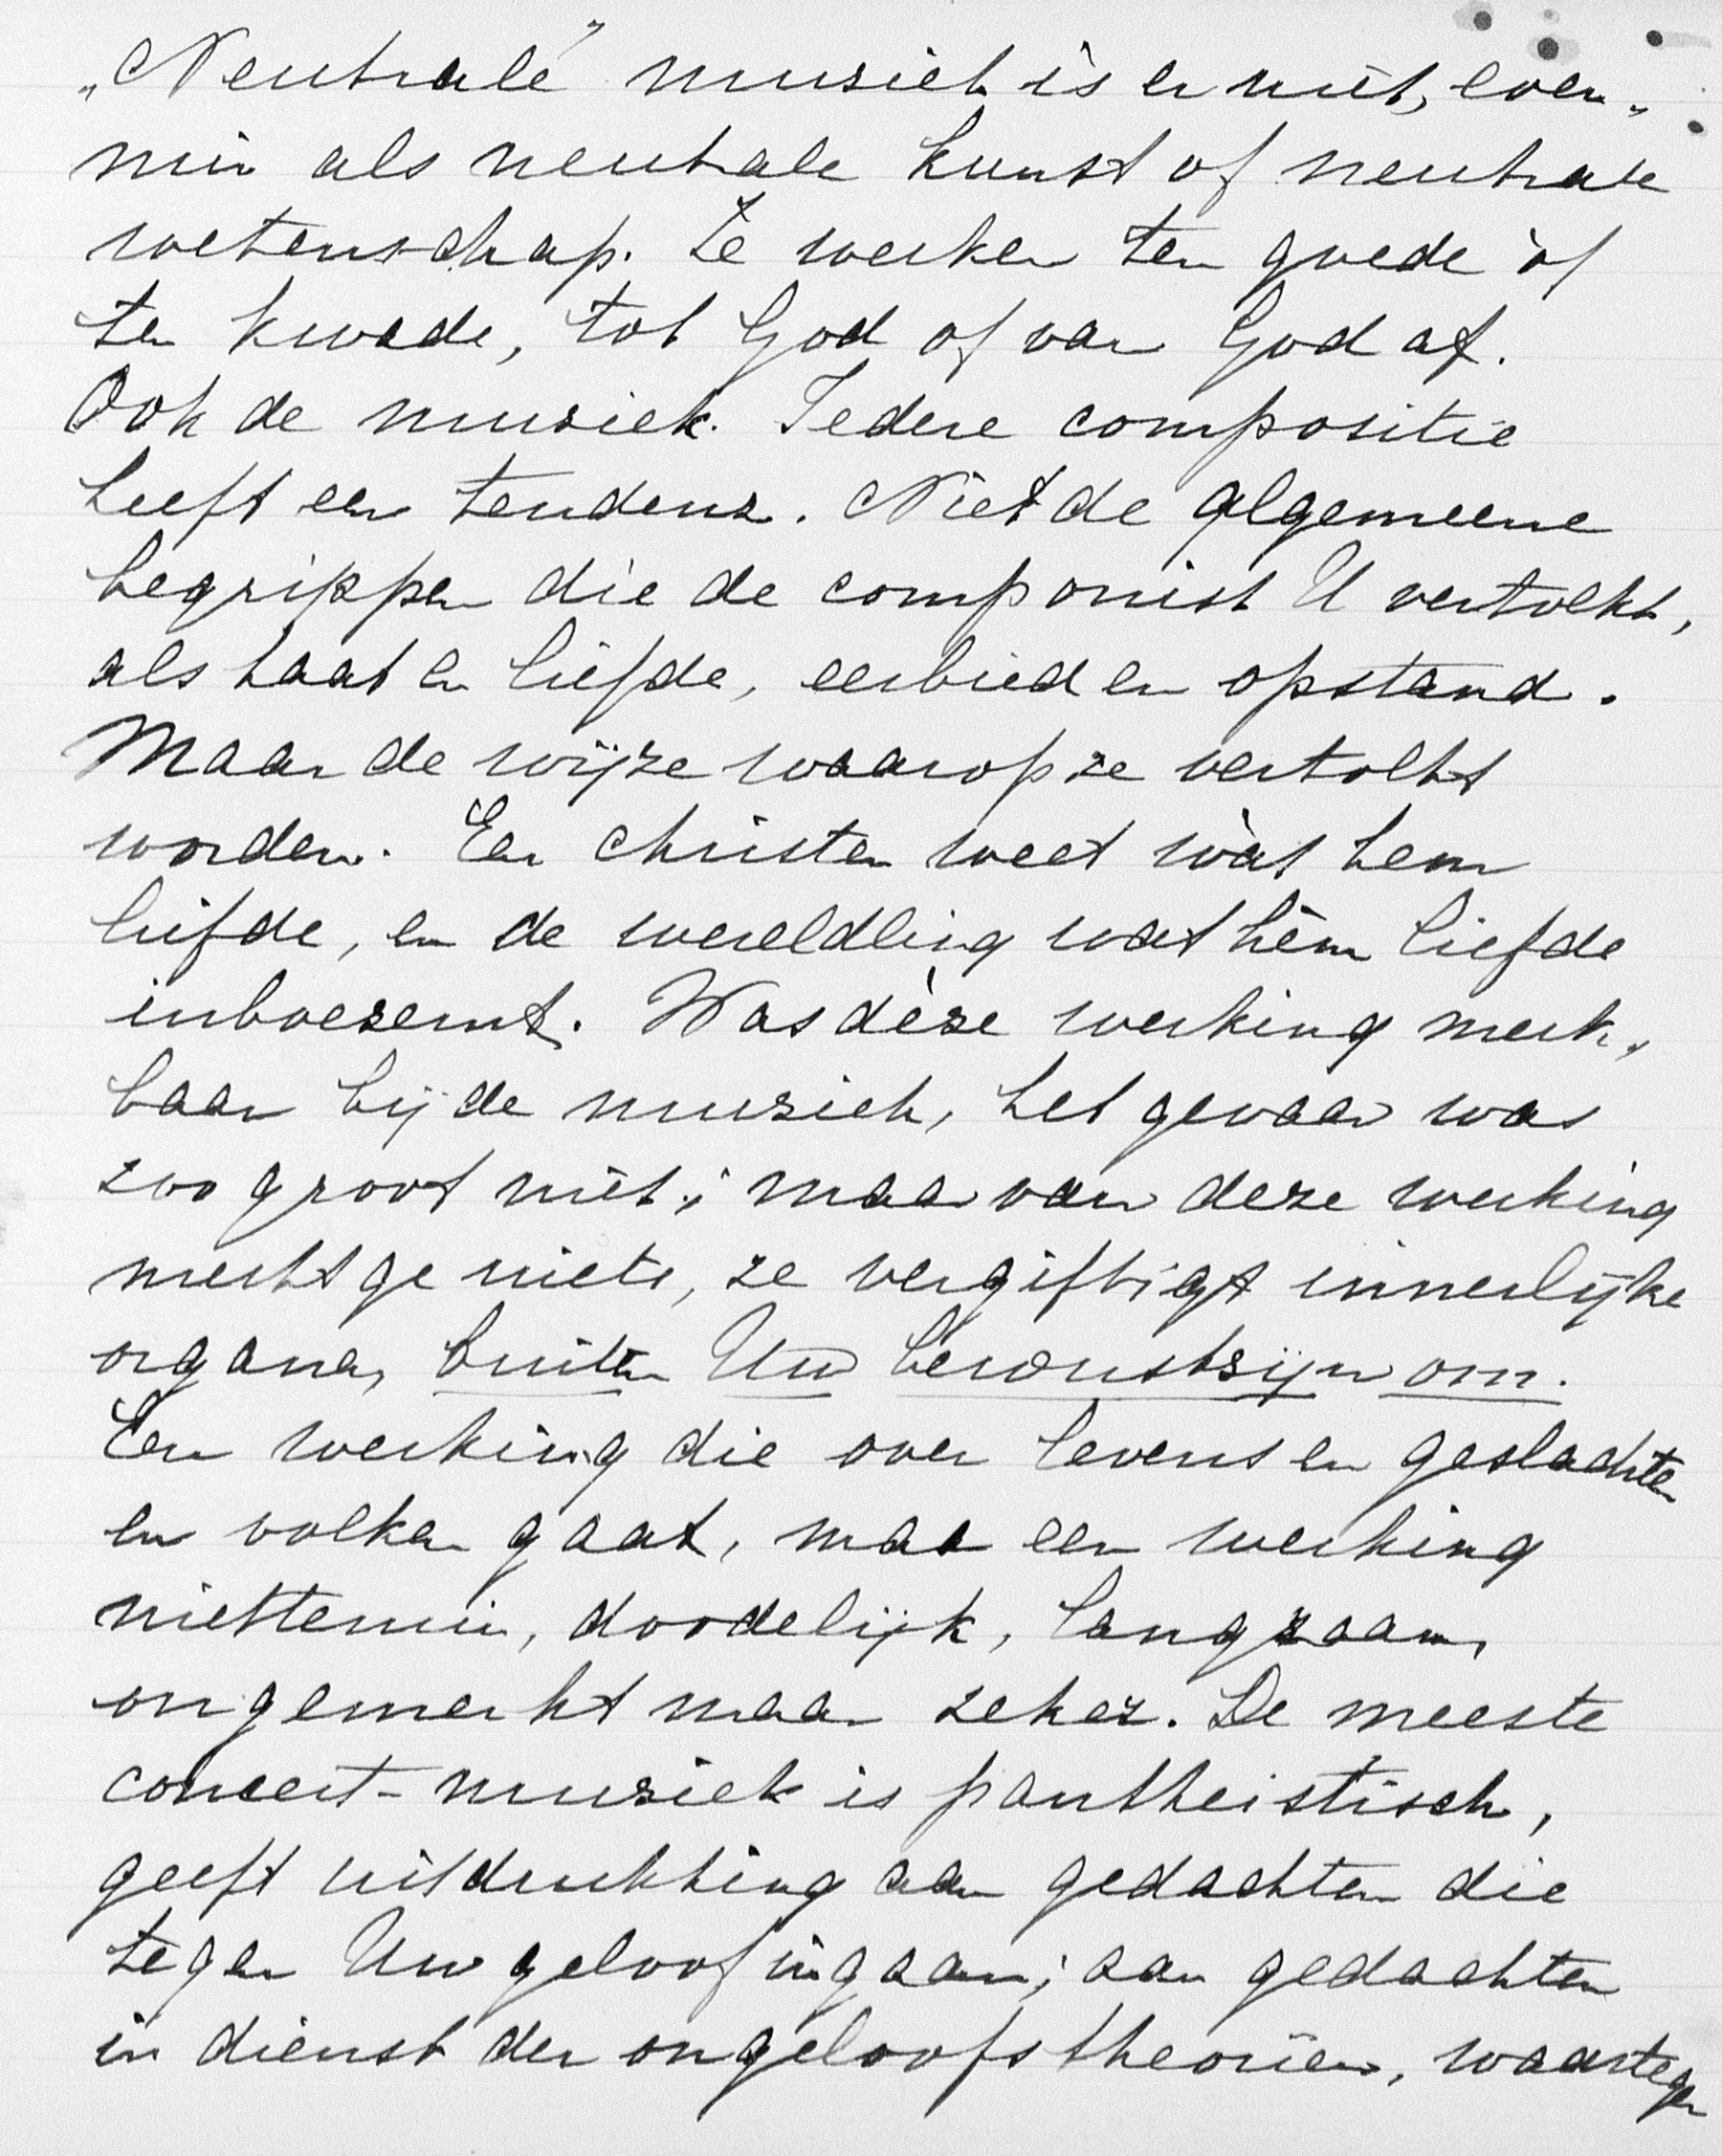 „Neutrale" muziek is er niet, even„
min als neutrale kunst of neutrale
wetenschap. Ze werken ten goede òf
ten kwade, tot God of van God af.
Ook de muziek. Iedere compositie
heeft een tendenz. Niet de algemeene
begrippen die de componist U vertolkt,
als haat en liefde, eerbied en opstand.
Maar de wijze waarop ze vertolkt
worden. Een christen weet wàt hem
liefde, en de wereldling wat hèm liefde
inboezemt. Was dèze werking merk„
baar bij de muziek, het gevaar was
zoo groot niet; maar van deze werking
merkt ge niets, ze vergiftigt innerlijke
organen, buiten Uw bewustzijn om.
Een werking die over levens en geslachten
en volken gaat, maar een werking
niettemin, doodelijk, langzaam,
ongemerkt maar zeker. De meeste
concert-muziek is pantheistisch,
geeft uitdrukking aan gedachten die
tegen Uw geloof ingaan; aan gedachten
in dienst der ongeloofstheoriën, waartegen